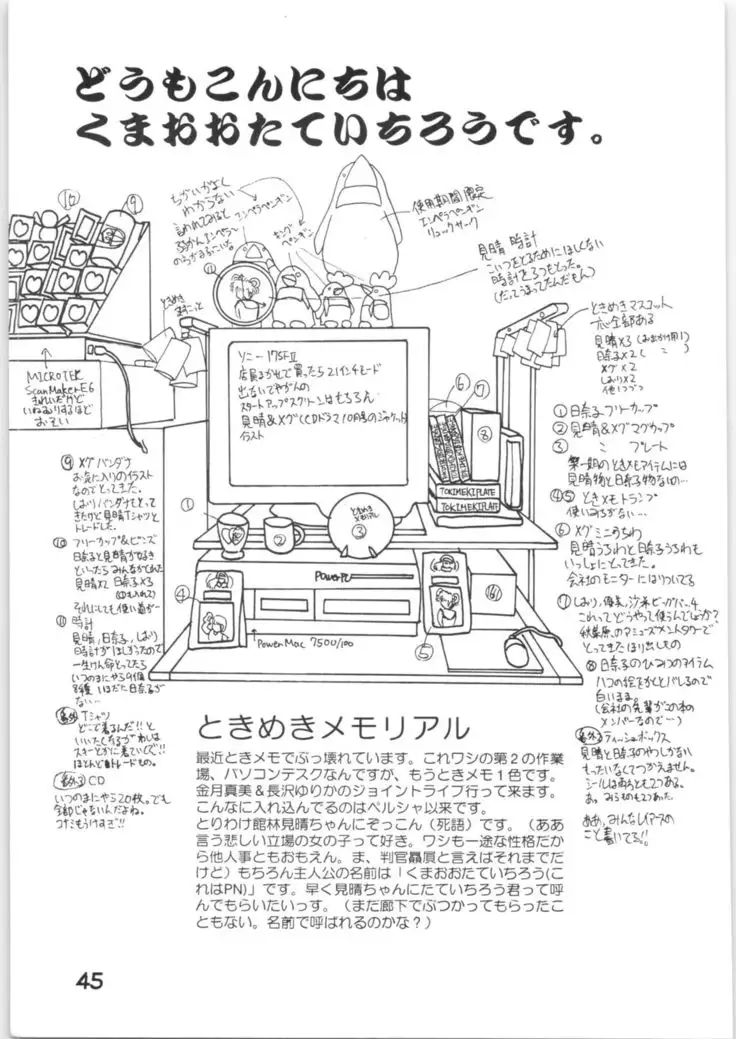 どうもこんにちは
くまおおたていちろうです。
⑩
⑨
ちがいがよく
わからない
エンペラペンギン
キング
ペンギン
使用期間限定
エンペラペンギン
リュックサック
見晴時計
こいつをとるためにほしくない
時計を3つもとった。
(だってうまってたんだもん)
⑪
ときめき
ますこっと
ときめきマスコット
全部ある
見晴×3(お出かけ用1)
日奈子×2
メグ×2
しおり×2
他1つづつ
MICROTEK
ScanMaker E6
きれいだけど
いねむりするほど
おそい
ソニー17SFⅡ
店員まかせで買ったら21インチモード
スタートアップスクリーンはもちろん
見晴&メグ(CDドラマ10月号のジャケット)
イラスト
⑥
⑦
⑧
TOKIMEKIPLATE
TOKIMEKIPLATE
①
②
ときめき
メモリアル
③
④
PowerPC
PowerMac 7500/100
⑤
①日奈子フリーカップ
②見晴&メグマグカップ
③ 〃 プレート
第一期のときメモアイテムには
見晴物と日奈子物がないの…
④⑤ときメモトランプ
使いみちがない…
⑥メグミニうちわ
見晴うちわと日奈子うちわも
いっしょにとってきた。
会社のモニターにはりついてる
⑦しおり,優美,沙希ビッグバー4
これってどうやって使うんでしょうか?
秋葉原のアミューズメントタワーで
とってきたほり出しもの
⑧日奈子のひみつのアイテム
八つの絵をかくとバレるので
白いまま。
(会社の先輩がこの本の
メンバーなのでー)
番外ティッシュボックス
見晴と日奈子のやつしかない
もったいなくてつかえません。
シールは両方とも2つある。
あ。みらきのも2つあった。
ああ、みんなレイアースの
こと書いてる!!
⑨メグバンダナ
お気に入りのイラスト
なのでとってきた。
しおりバンダナもとって
きたけど見晴Tシャツと
トレードした。
⑩フリーカップ&ビンズ
日奈子と見晴がすき
といったらみんながくれた
見晴×2 日奈子×3
それにしても使い道がー
⑪時計
見晴,日奈子,しおり
時計がほしかったので
一生けん命とってたら
いつのまにやら9個
8種 いまだに日奈子が
ない…
番外Tシャツ
どこで着るんだ!!と
いいたくなるがわしは
スキーとかに着ていくぞ!!
ほとんどトレードもの。
番外CD
いつのまにやら20枚。でも
全部じゃないんだよね。
コナミもうけすぎ!!
ときめきメモリアル
最近ときメモでぶっ壊れています。これワシの第２の作業
場、パソコンデスクなんですが、もうときメモ１色です。
金月真美＆長沢ゆりかのジョイントライブ行って来ます。
こんなに入れ込んでるのはペルシャ以来です。
とりわけ館林見晴ちゃんにぞっこん（死語）です。（ああ
言う悲しい立場の女の子って好き。ワシも一途な性格だか
ら他人事ともおもえん。ま、判官贔屓と言えばそれまでだ
けど）もちろん主人公の名前は「くまおおたていちろう(こ
れはPN)」です。早く見晴ちゃんにたていちろう君って呼
んでもらいたいっす。（まだ廊下でぶつかってもらったこ
ともない。名前で呼ばれるのかな？）
45